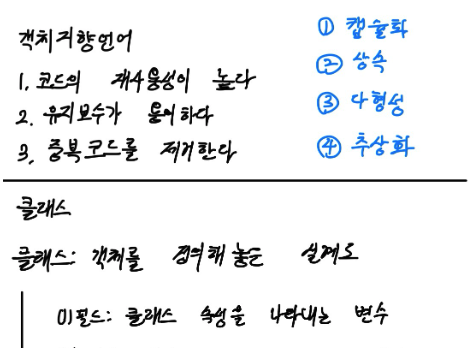 객체지향언어
1. 코드의 재사용성이 높다
2. 유지보수가 용이하다
3. 중복코드를 제거한다
① 캡슐화
② 상속
③ 다형성
④ 추상화
클래스
클래스: 객체를 정의해 놓은 설계도
필드: 클래스 속성을 나타내는 변수